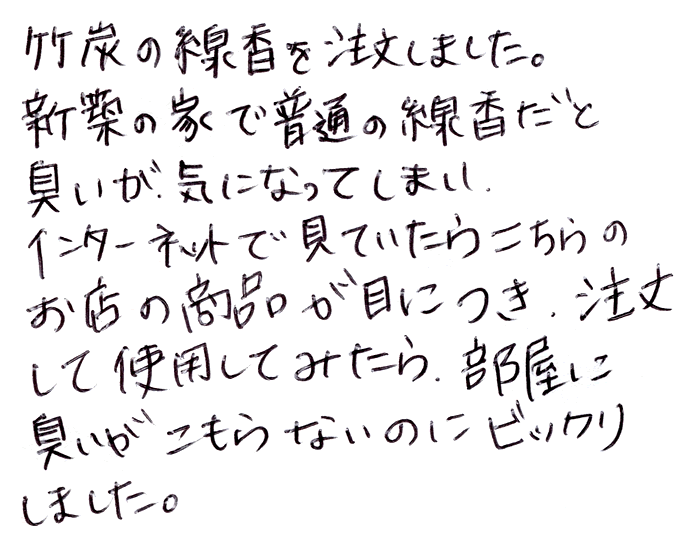 竹炭の線香を注文しました。
新築の家で普通の線香だと
臭いが、気になってしまい、
インターネットで見ていたらこちらの
お店の商品が目につき、注文
して使用してみたら、部屋に
臭いがこもらないのにビックリ
しました。